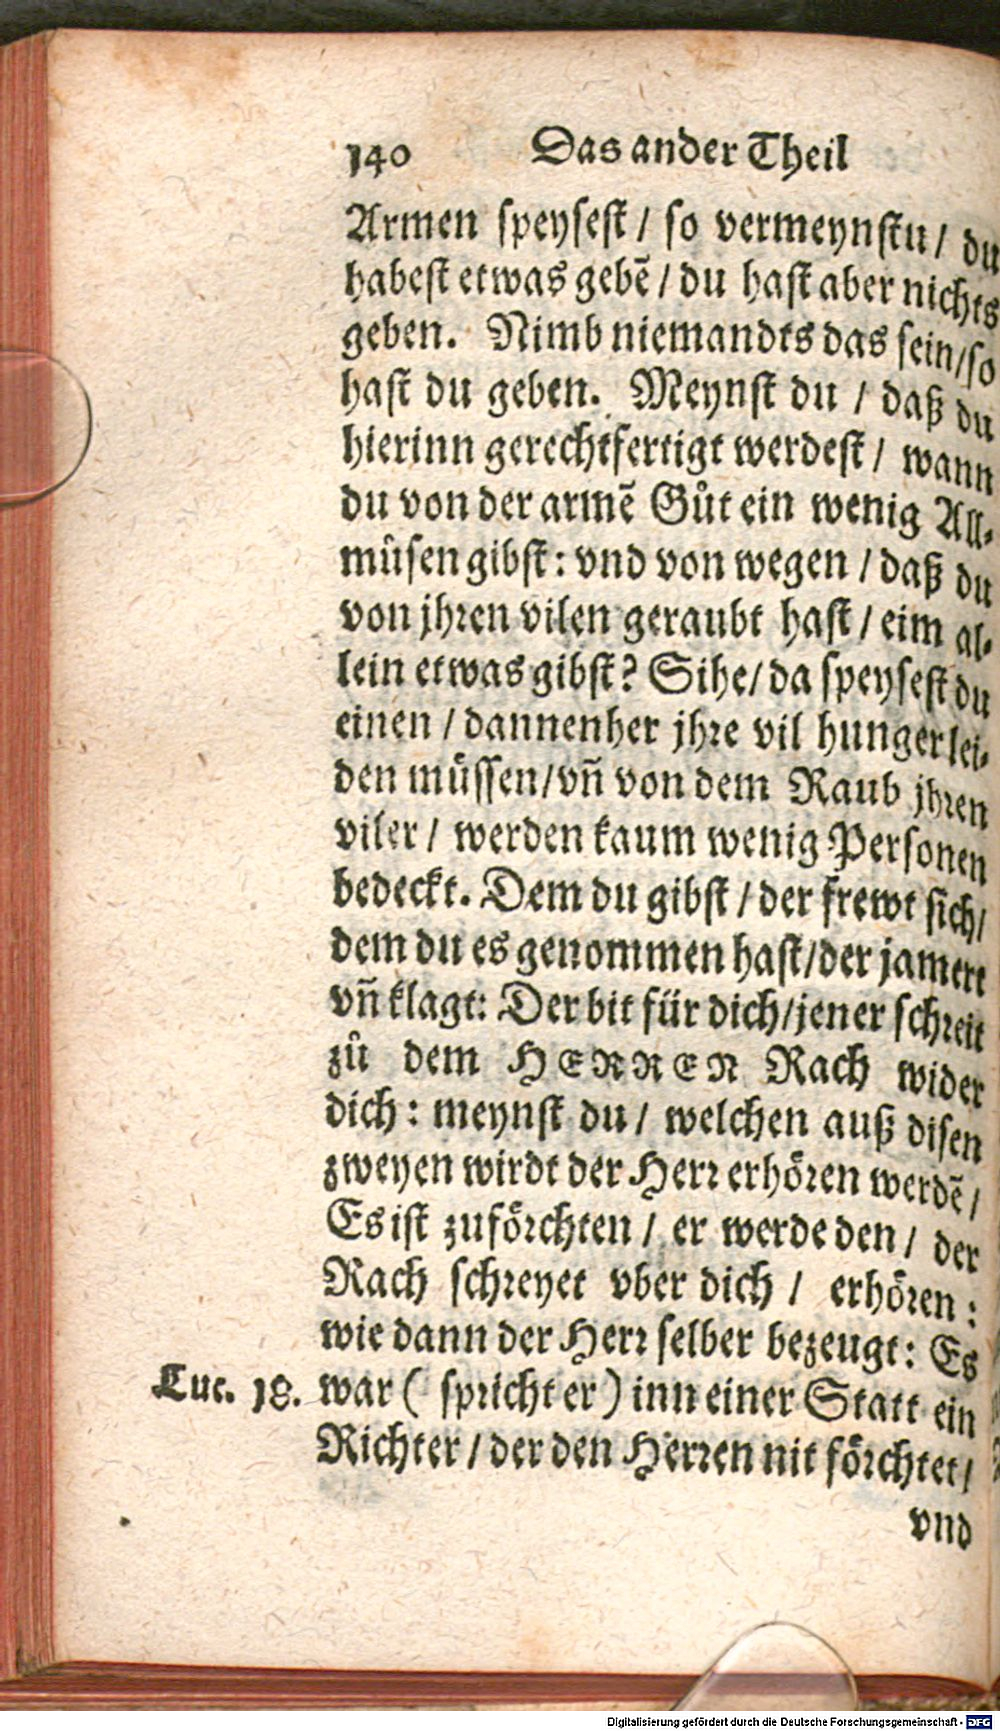 140 Das ander Theil
Armen speysest / so vermeynstu / du
habest etwas gebẽ / du hast aber nichts
geben. Nimb niemandts das sein / so
hast du geben. Meynst du / daß du
hierinn gerechtfertigt werdest / wann
du von der armẽ Gůt ein wenig All-
můsen gibst : vnd von wegen / daß du
von jhren vilen geraubt hast / eim al-
lein etwas gibst? Sihe / da speysest du
einen / dannenher jhre vil hunger lei-
den müssen / vñ von dem Raub jhren
viler / werden kaum wenig Personen
bedeckt. Dem du gibst / der frewt sich /
dem du es genommen hast / der jamert
vñ klagt: Der bit für dich / jener schreit
zů dem HERREN Rach wider
dich : meynst du / welchen auß disen
zweyen wirdt der Herr erhören werdẽ /
Es ist zuförchten / er werde den / der
Rach schreyet vber dich / erhören :
wie dann der Herr selber bezeugt : Es
Luc. 18. war ( spricht er ) inn einer Statt ein
Richter / der den Herren nit förchtet /
vnd
Digitalisierung gefördert durch die Deutsche Forschungsgemeinschaft - DFG